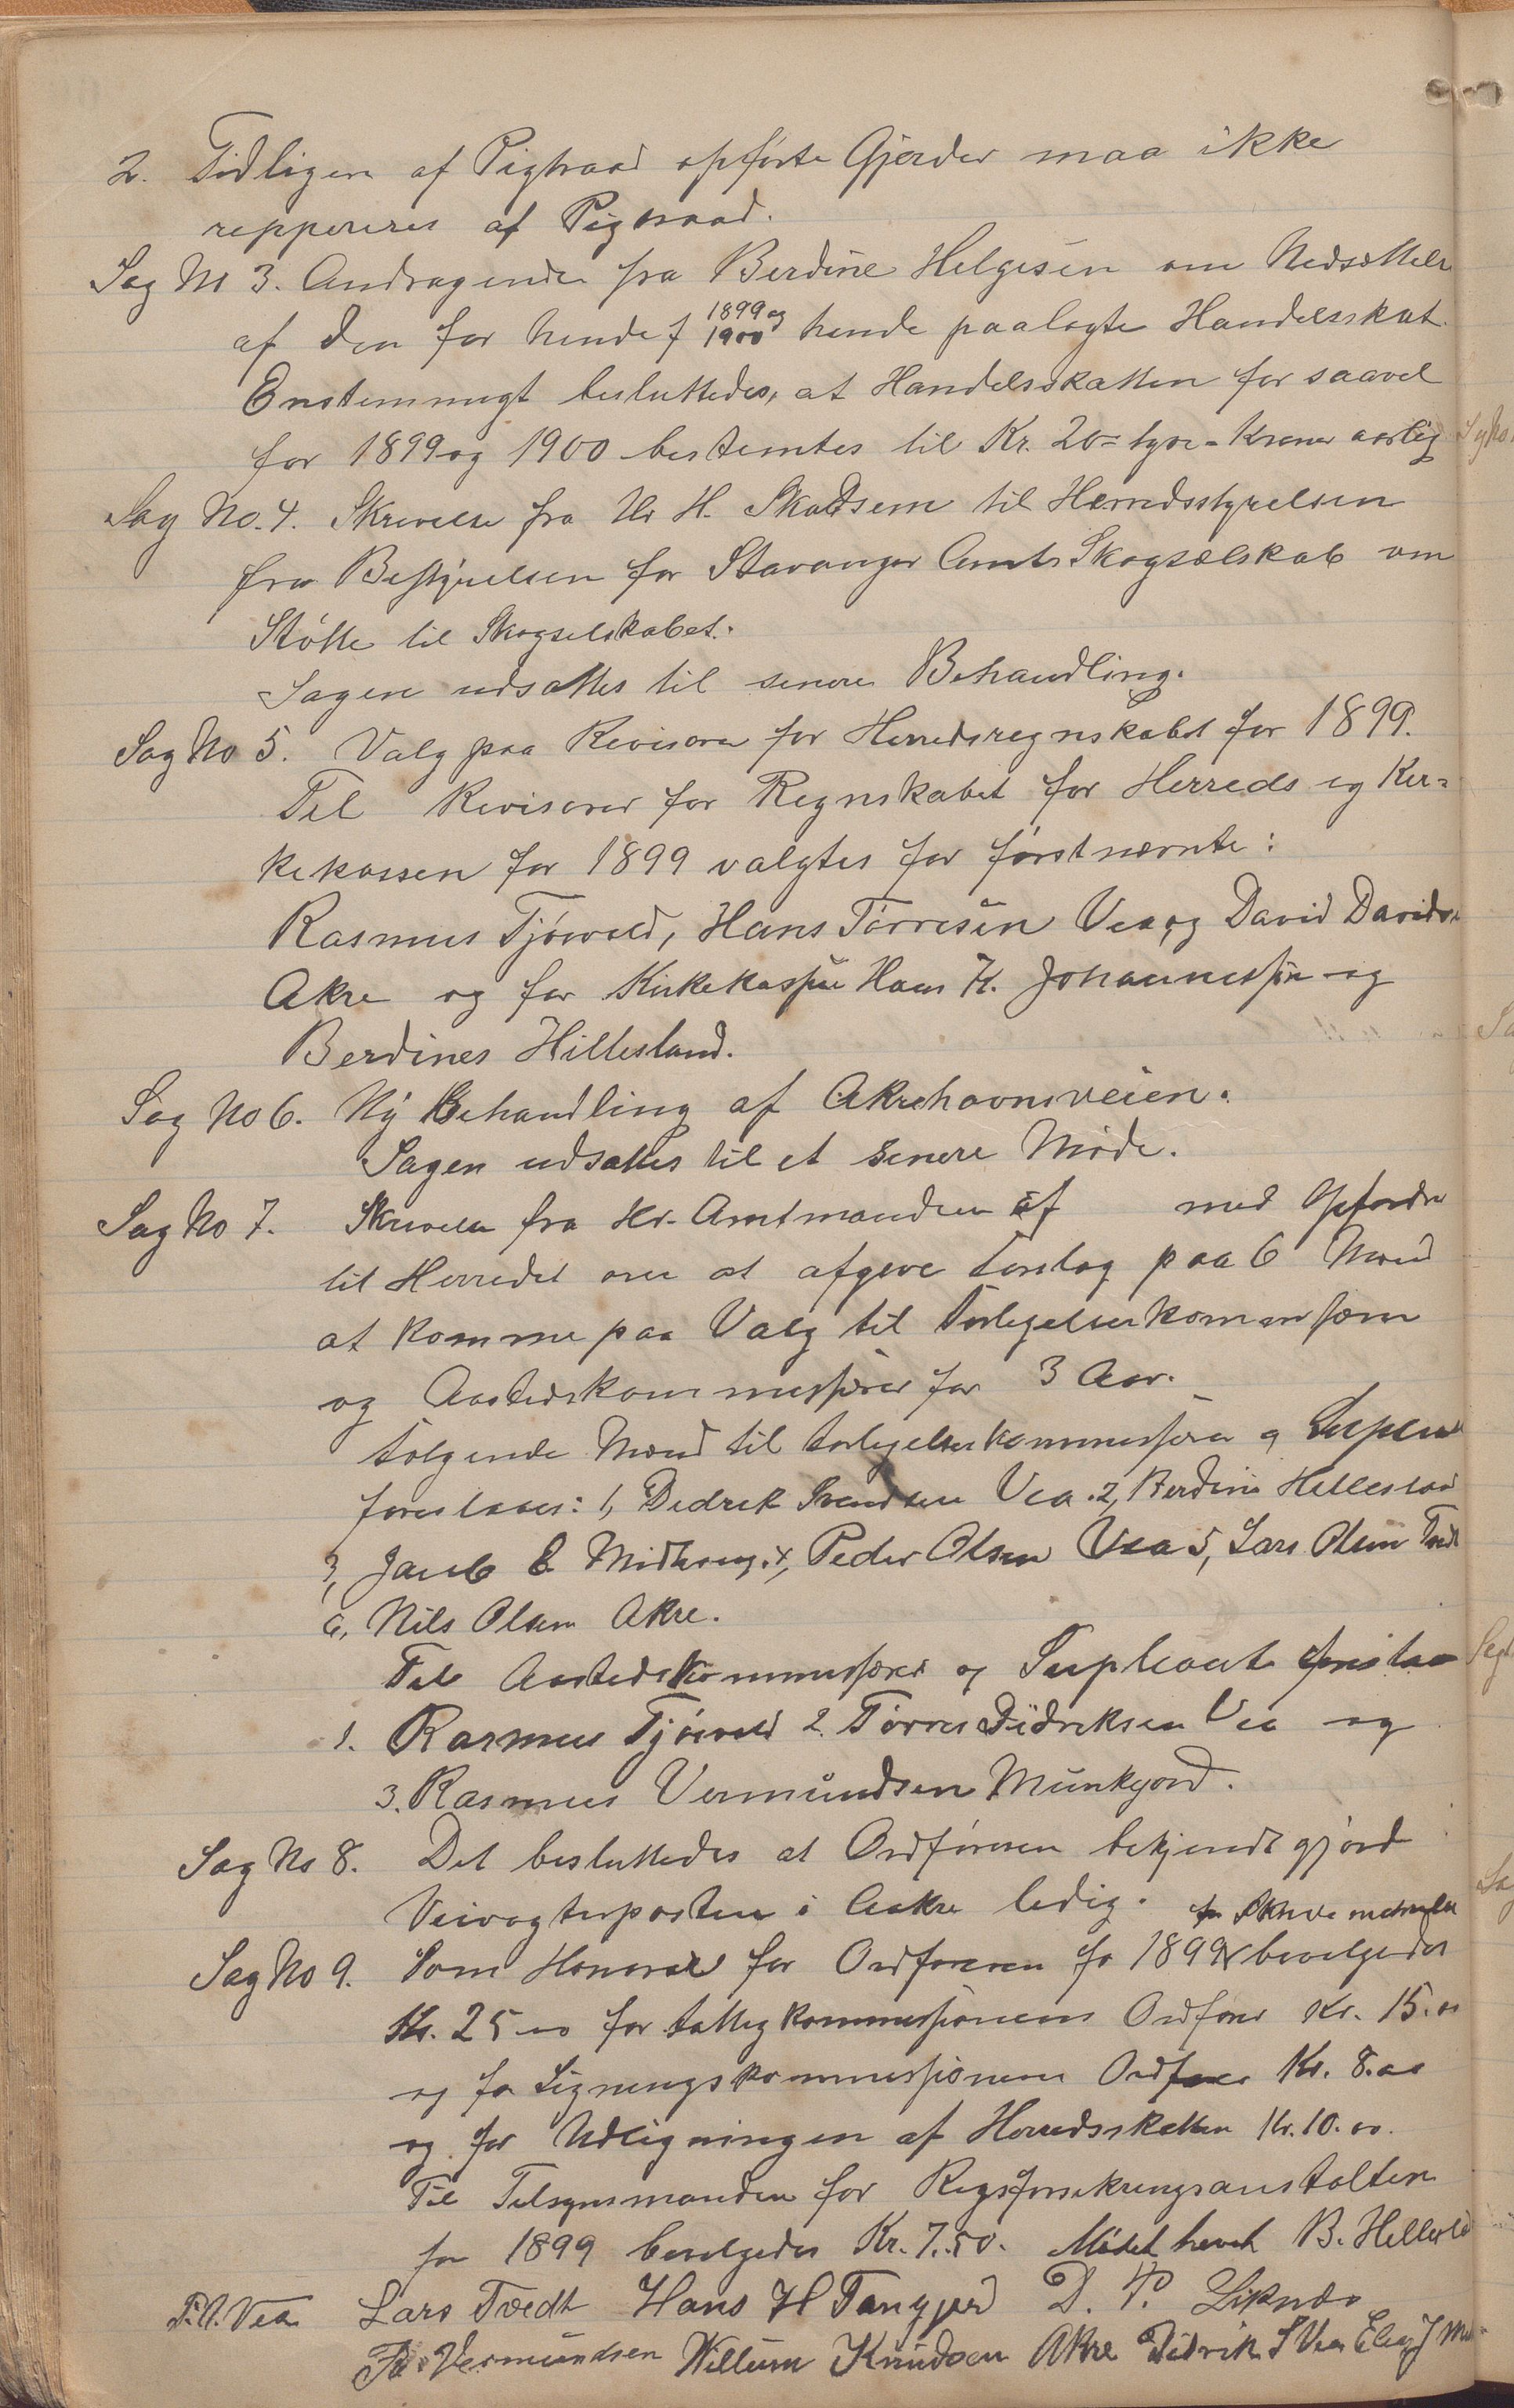 2. Tidligere af Pigtraad opførte Gjerder maa ikke
repporeres af Pigtraad.
Sag No 3. Andragende fra Berdine Helgesen om Nedsættelse
af den for hende f 1899 og 1900 hende paalagte Handelsskat.
Enstemmigt besluttedes, at Handelsskatten for saavel
for 1899 og 1900 bestemtes til Kr. 20 = tyve = Kroner aarlig
Sag No. 4. Skrivelse fra Hr H. Skadsem til Herredsstyrelsen
fra Bestyrelsen for Stavanger Amts Skogsælskab om
Støtte til Skogselskabet.
Sagen udsattes til senere Behandling.
Sag No 5. Valg paa Revisorer for Herredsregnskabet for 1899.
Til Revisorer for Regnskabet for Herreds og Kir=
kekassen for 1899 valgtes for førstnævnte:
Rasmus Tjøsvold, Hans Tørresen Vea, og David Davids.
Akre og for Kirkekassen Hans K. Johannessen og
Berdines Hillesland.
Sag No 6. Ny Behandling af Akrehavnsveien.
Sagen udsattes til et senere Møde.
Sag No 7. Skrivelse fra Hr. Amtmanden af med Opfordr
til Herredet om at afgive Forslag paa 6 Mænd
at komme paa Valg til Forligelseskommissærer
og Aastedskommissærer for 3 Aar.
Følgende Mænd til Forligelseskommissærer og Suplean
foreslaaes: 1, Didrik Svendsen Vea. 2, Berdines Hillesland
3, Jacob E. Midhaug. 4, Peder Olsen Vea 5, Lars Olsen Tvedt
6, Nils Olsen Akre.
Til Aastedskommissærer og Supleant foreslaa
1. Rasmus Tjøsvold 2. Tørres Didriksen Vea og
3. Rasmus Vermundsen Munkejord.
Sag No 8. Det besluttedes at Ordføreren bekjendtgjord
Veivogterposten i Aakre ledig.
Sag No 9. Som Honorar for Ordføreren for 1899 bevilgedes
Kr. 25.00 for Fattigkommissionens Ordfører Kr. 15.00
og for Ligningskommissionens Ordfører Kr. 8.00
og for Udligningen af Herredsskatten Kr. 10.00.
Til Tilsynsmanden for Rigsforsikringsanstalten
for 1899 bevilgedes Kr. 7.50. Mødet hævet B. Hillesld
Lars Tvedt Hans H Tangjerd D. P.
Vermundsen Willum Knudsen Akre Didrik S Vea Elias J